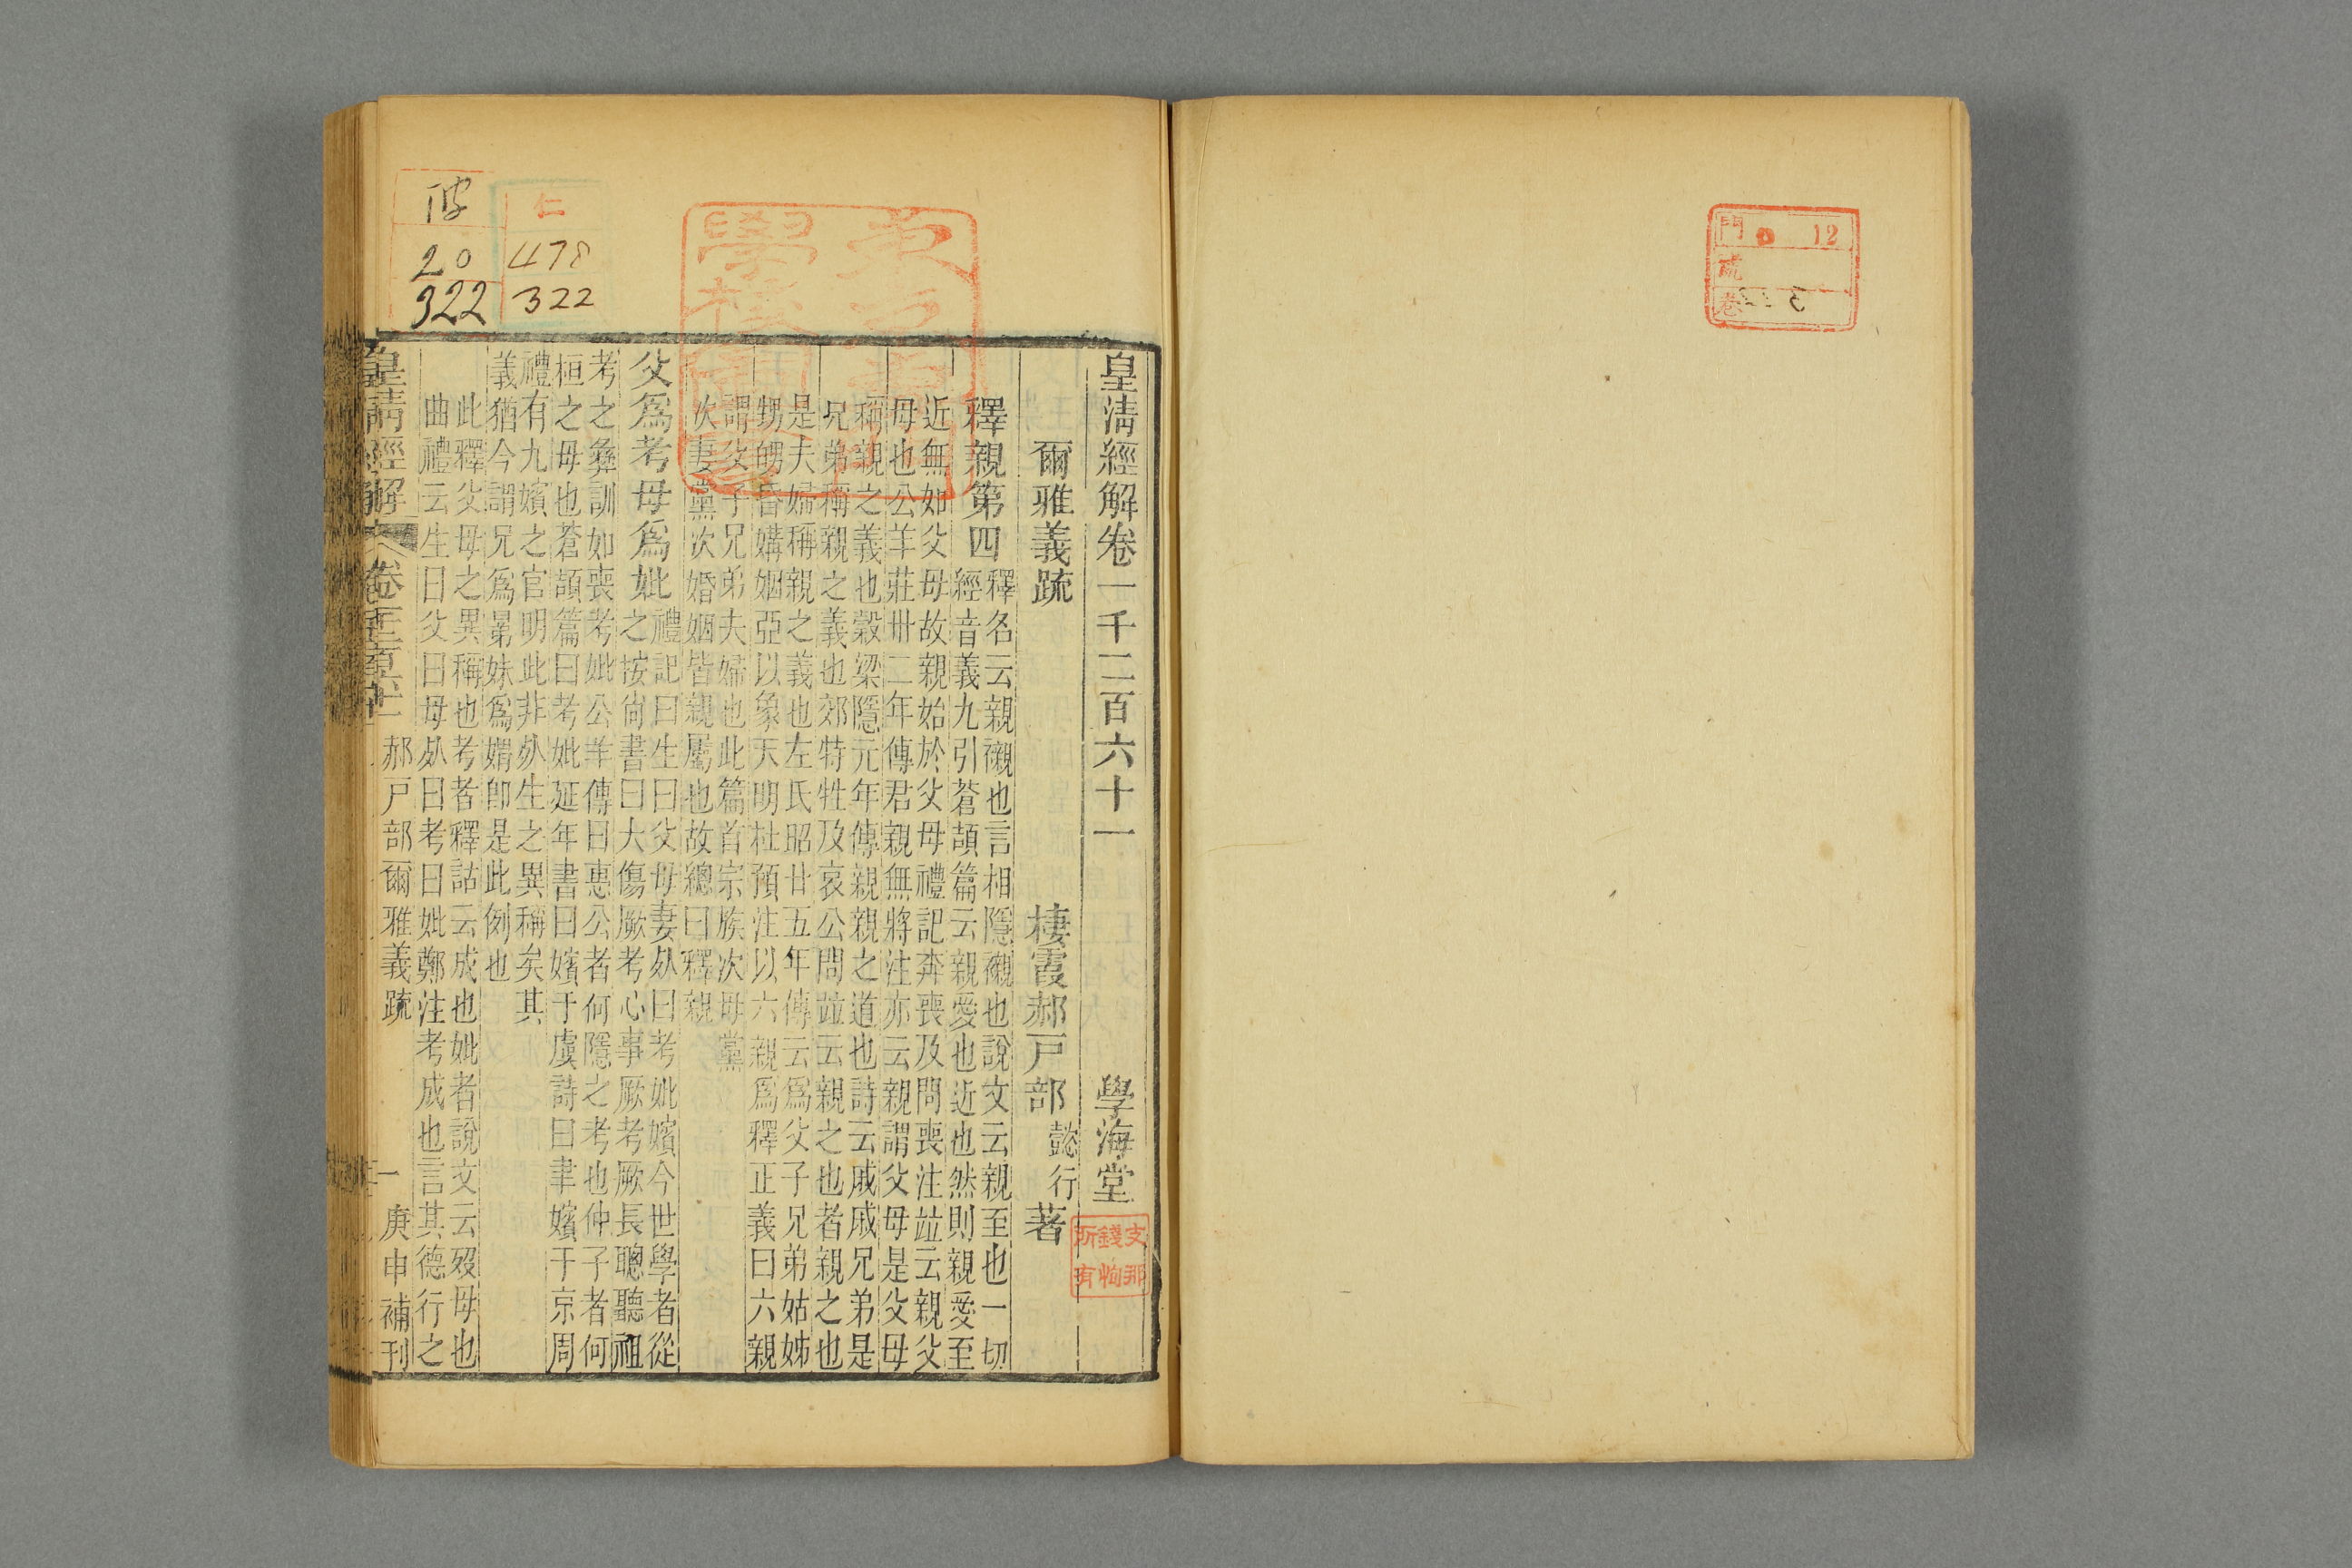 門 12
號
卷
皇淸經解卷一千二百六十一 學海堂
爾雅義疏 棲霞郝戸部懿行著
釋親第四 釋名云親襯也言相隱襯也說文云親至也一切
經音義九引蒼頡篇云親愛也近也然則親愛至
近無如父母故親始於父母禮記奔喪及問喪注竝云親父
母也公羊莊卅二年傳君親無將注亦云親謂父母是父母
稱親之義也穀梁隱元年傳親親之道也詩云戚戚兄弟是
兄弟稱親之義也郊特牲及哀公問竝云親之也者親之也
是夫婦稱親之義也左氏昭廿五年傳云爲父子兄弟姑姊
甥舅昏媾姻亞以象天明杜預注以六親爲釋正義曰六親
謂父子兄弟夫婦也此篇首宗族次母黨
次妻黨次婚姻皆親屬也故總曰釋親
父爲考母爲妣 禮記曰生曰父母妻死曰考妣嬪今世學者從
之按尙書曰大傷厥考心事厥考厥長聰聽祖
考之彝訓如喪考妣公羊傳曰惠公者何隱之考也仲子者何
桓之母也蒼頡篇曰考妣延年書曰嬪于虞詩曰聿嬪于京周
禮有九嬪之官明此非死生之異稱矣其
義猶今謂兄爲晜妹爲媦卽是此例也
此釋父母之異稱也考者釋詁云成也妣者說文云歿母也
曲禮云生曰父曰母死曰考曰妣鄭注考成也言其德行之
皇淸經解 卷一千二百六十一 郝戸部爾雅義疏 一 庚申補刊
支那
錢恂
所有
仁
478
322
20
322